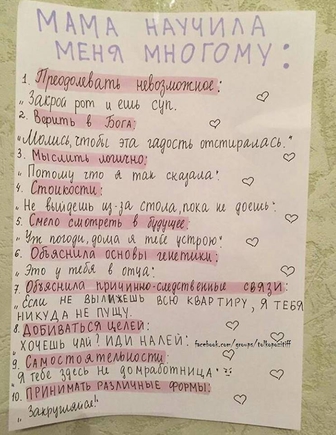 МАМА НАУЧИЛА
МЕНЯ МНОГОМУ:
1. Преодолевать невозможное:
„Закрой рот и ешь суп.
2. Верить в Бога:
„Молись, чтобы эта гадость отстиралась."
3. Мыслить логично:
„Потому что я так сказала."
4. Стойкости:
„Не выйдешь из-за стола, пока не доешь."
5. Смело смотреть в будущее:
„Уж погоди, дома я тебе устрою."
6. Объяснила основы генетики:
„Это у тебя в отца."
7. Объяснила причинно-следственные связи:
„ЕСЛИ НЕ ВЫЛИЖЕШЬ ВСЮ КВАРТИРУ, Я ТЕБЯ
НИКУДА НЕ ПУЩУ.
8. ДОБИВАТЬСЯ ЦЕЛЕЙ:
ХОЧЕШЬ ЧАЙ? ИДИ НАЛЕЙ.
facebook.com/groups/tolkopozitiff
9. Самостоятельности:
„Я тебе здесь не домработница."
10. ПРИНИМАТЬ РАЗЛИЧНЫЕ ФОРМЫ:
„Закругляйся!"